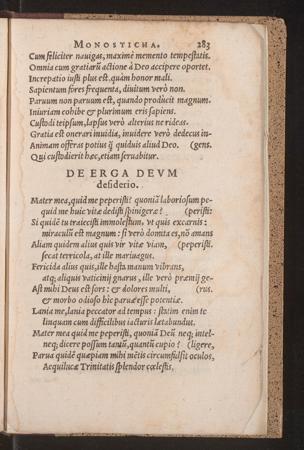 MONOSTICHA. 283
Cum feliciter nauigas, maximè memento tempestatis.
Omnia cum gratiarũ actione à Deo accipere oportet.
Increpatio iusti plus est, quàm honor mali.
Sapientum fores frequenta, diuitum verò non.
Paruum non paruum est, quando producit magnum.
Iniuriam cohibe & plurimum eris sapiens.
Custodi teipsum, lapsus verò alterius ne rideas.
Gratia est onerari inuidia, inuidere verò dedecus in-
Animam offeras potius ꝗ̃ quiduis aliud Deo. (gens.
Qui custodierit hæc, etiam seruabitur.
DE ERGA DEVM
desiderio.
Mater mea, quid me peperisti? quoniã laboriosum pe-
quid me huic vitæ dedisti spinigeræ? (peristi:
Si quidẽ tã traiecisti immolestum, vt quis excarnis:
miraculũ est magnum: si verò domita es, nõ amans
Aliam quidem alius quis vir vitæ viam, (peperisti.
secat terricola, at ille mariuagus.
Fericida alius quis, ille hasta manum vibrans,
atq; aliquis vaticinij gnarus, ille verò præmij ge-
Ast mihi Deus est sors: & dolores multi, (rus.
& morbo odioso hîc parua esse potentiæ.
Lania me, lania peccator ad tempus: statim enim te
linquam cum difficilibus iacturis lætabundus.
Mater mea quid me peperisti, quoniã Deũ neq; intel-
neq; dicere possum tantũ, quantũ cupio? (ligere,
Parua quidẽ quæpiam mihi mẽtis circumfulsit oculos,
Aequilucæ Trinitatis splendor cœlestis,